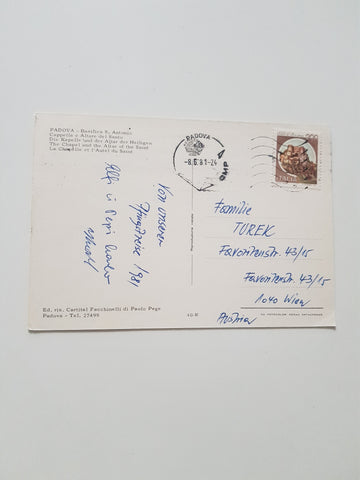 PADOVA - Basilica S. Antonio
Cappella e Altare del Santo
Die Kapelle und der Altar der Heiligen
The Chapel and the Altar of the Saint
La Chapelle et l'Autel du Saint
PADOVA
-8.6.81-24
CMP
200
Von unserer
Pfingstreise 1981
Alfi u Pepi
Familie
TUREK
Favoritenstr. 43/15
Favoritenstr. 43/15
1040 Wien
Austria
Ed. ris. Cartital Facchinelli di Paolo Pego
Padova - Tel. 27499